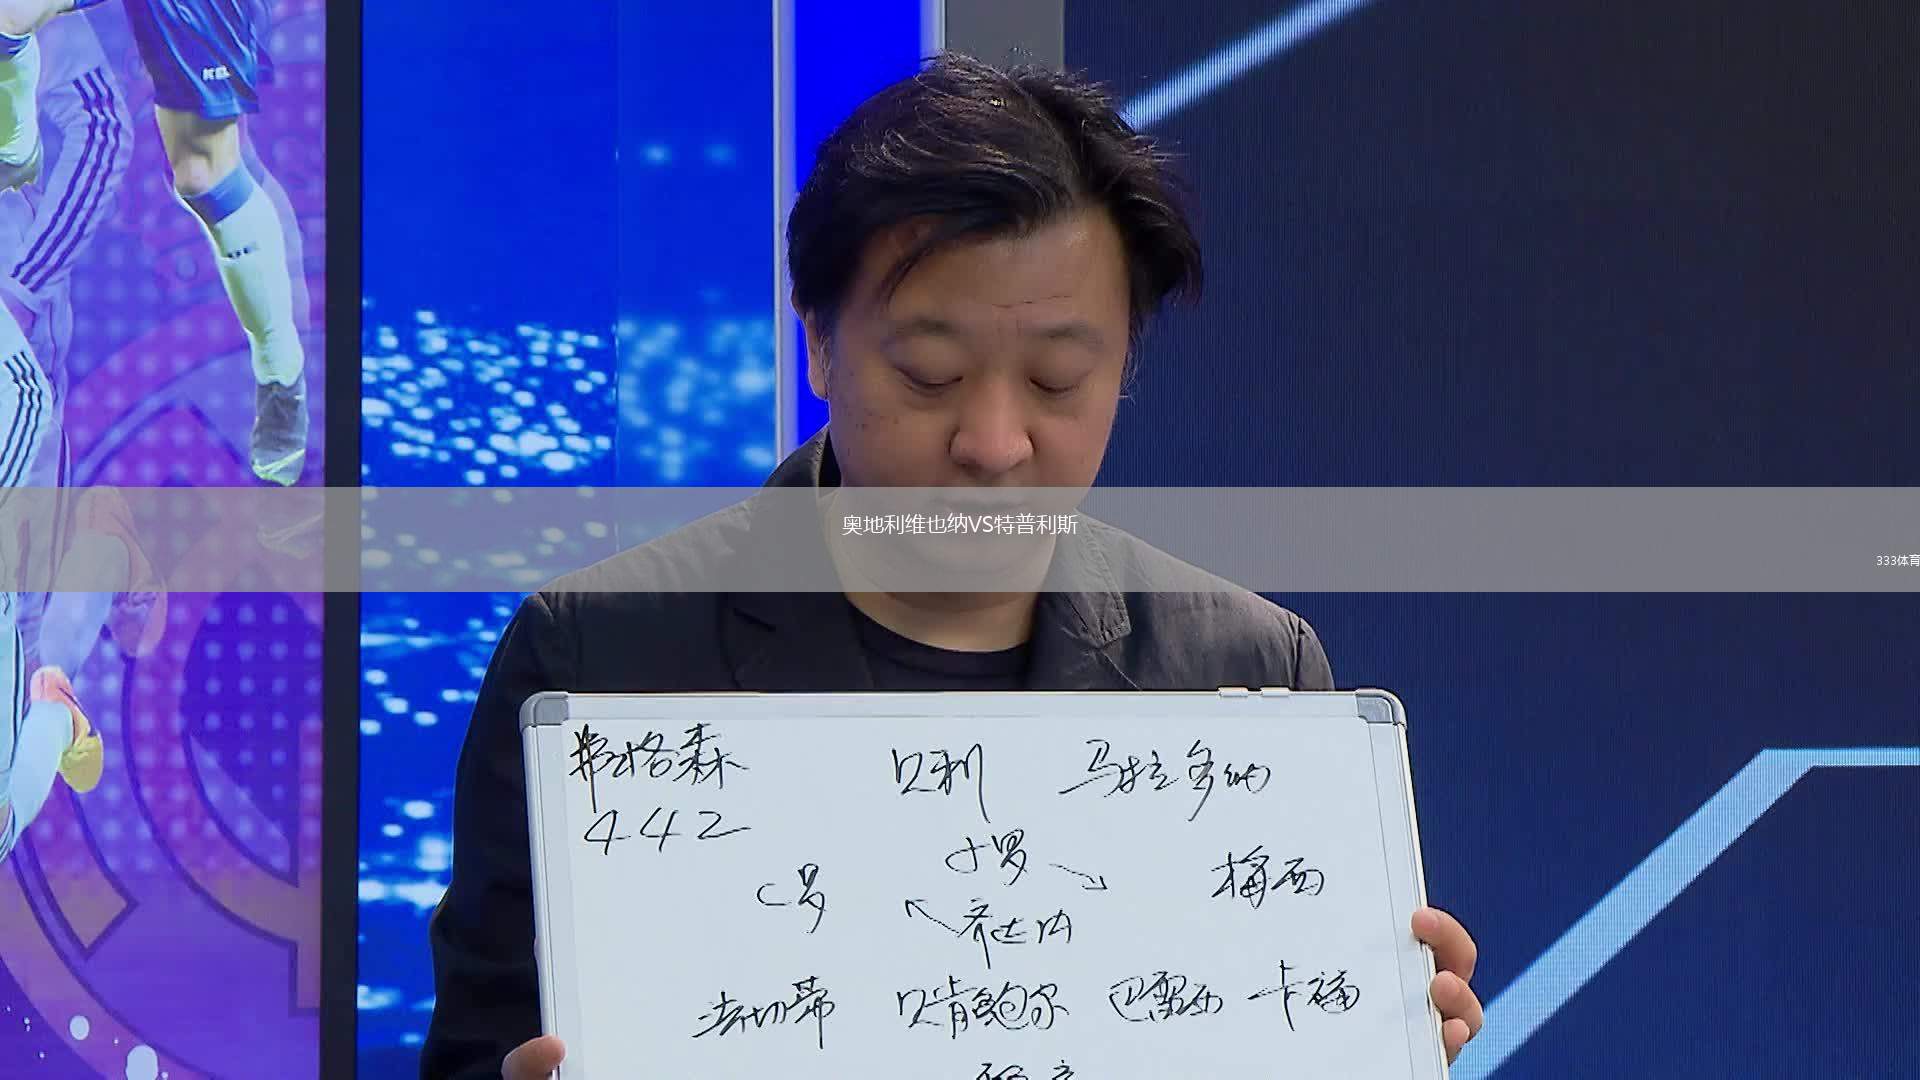 奥地利维也纳VS特普利斯
333体育
弗格森 贝利 马拉多纳
442
小罗
C罗 梅西
齐达内
法切蒂 贝肯鲍尔 巴雷西 卡福